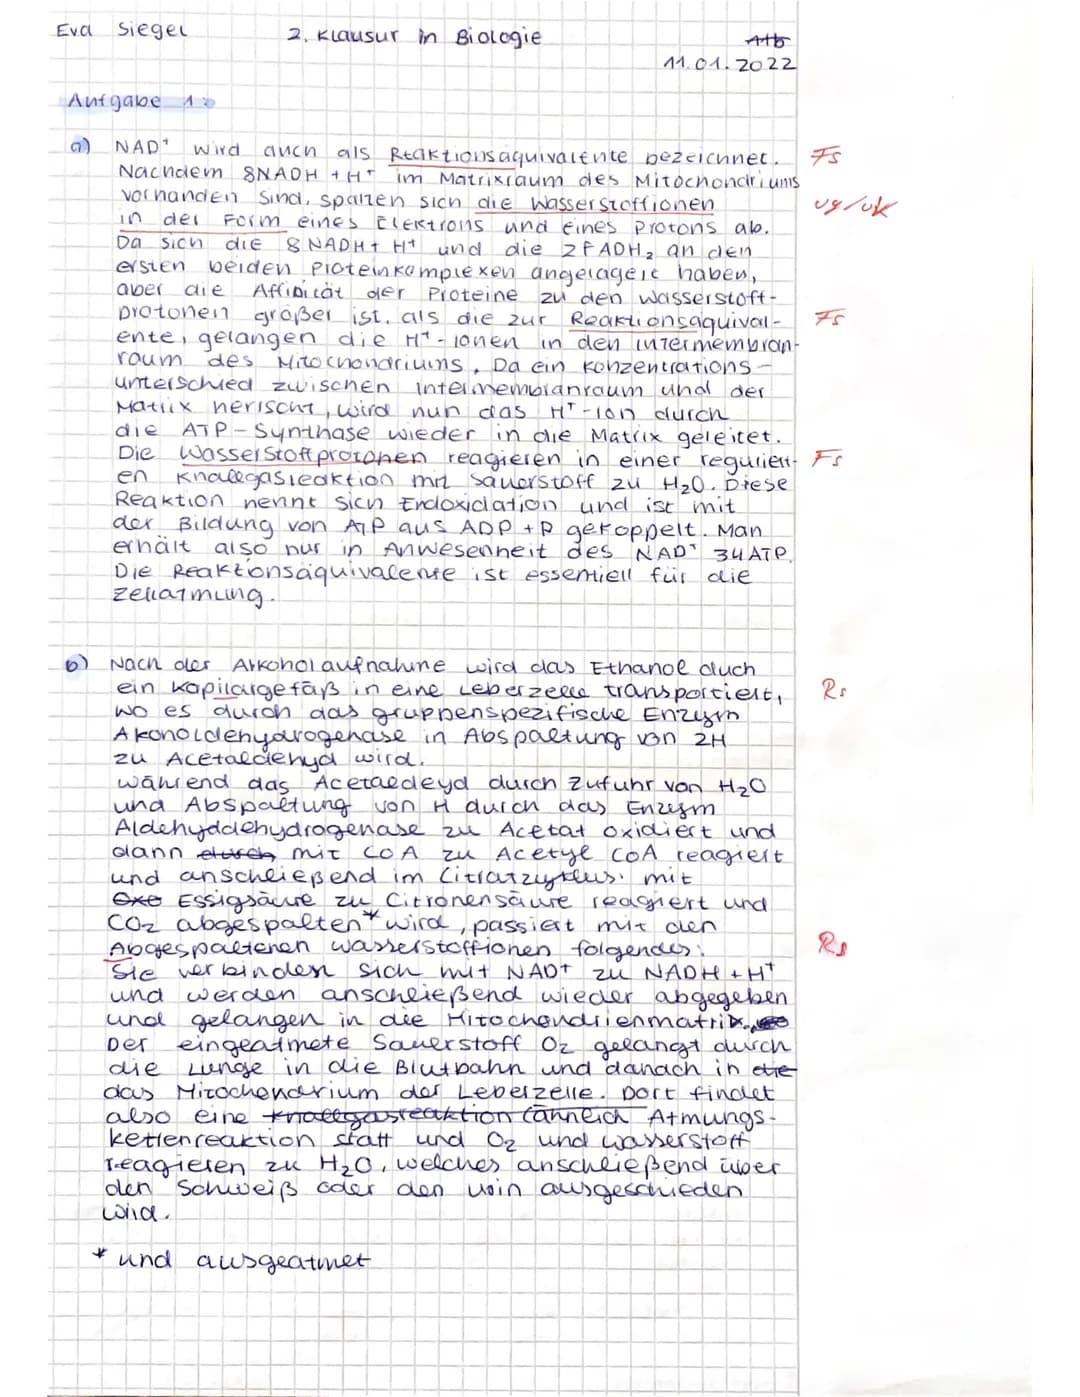 Eva Siegel
2. Klausur in Biologie
11.01.2022
Aufgabe 1:
a) NAD⁺ wird auch als Reaktionsäquivalente bezeichnet. Fs
Nachdem 8NADH + H⁺ im Matrixraum des Mitochondriums
vorhanden sind, spalten sich die Wasserstoffionen ug/uk
in der Form eines Elektrons und eines Protons ab.
Da sich die 8 NADH + H⁺ und die 2FADH₂ an den
ersten beiden Proteinkomplexen angelagert haben,
aber die Affinität der Proteine zu den Wasserstoff-
protonen größer ist, als die zur Reaktionsäquival- Fs
ente, gelangen die H⁺-Ionen in den Intermembran-
raum des Mitochondriums. Da ein Konzentrations-
unterschied zwischen Intermembranraum und der
Matrix herrscht, wird nun das H⁺-Ion durch
die ATP-Synthase wieder in die Matrix geleitet.
Die Wasserstoffprotonen reagieren in einer reguliert- Fs
en Knallgasreaktion mit Sauerstoff zu H₂O. Diese
Reaktion nennt sich Endoxidation und ist mit
der Bildung von ATP aus ADP + P gekoppelt. Man
erhält also nur in Anwesenheit des NAD⁺ 34ATP.
Die Reaktonsäquivalente ist essentiell für die
Zellatmung.
b) Nach der Alkoholaufnahme wird das Ethanol duch
ein Kapilargefäß in eine Leberzelle transportiert, Rs
wo es durch das gruppenspezifische Enzym
Akoholdehydrogenase in Abspaltung von 2H
zu Acetaldehyd wird.
Während das Acetaldeyd durch Zufuhr von H₂O
und Abspaltung von H durch das Enzym
Aldehyddehydrogenase zu Acetat oxidiert und
dann durch mit CoA zu Acetyl CoA reagiert
und anschließend im Citratzyklus mit
Oxe Essigsäure zu Citronensäure reagiert und
CO₂ abgespalten* wird, passiert mit den
Abgespaltenen Wasserstoffionen folgendes: Rs
Sie verbinden sich mit NAD+ zu NADH + H⁺
und werden anschließend wieder abgegeben
und gelangen in die Mitochondrienmatrix.
Der eingeatmete Sauerstoff O₂ gelangt durch
die Lunge in die Blutbahn und danach in die
das Mitochondrium der Leberzelle. Dort findet
also eine Knallgasreaktion (ähnlich Atmungs-
kettenreaktion statt und O₂ und Wasserstoff
reagieren zu H₂O, welches anschließend über
den Schweiß oder den Urin ausgeschieden
wird.
* und ausgeatmet